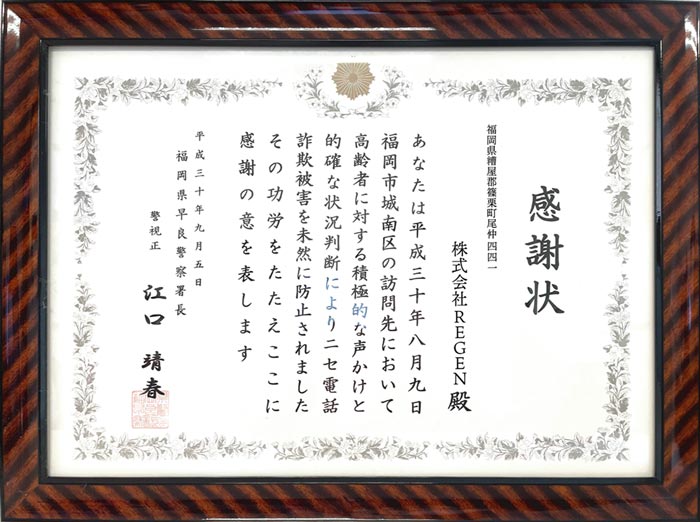 感謝状
福岡県糟屋郡篠栗町尾仲四四一
株式会社REGEN殿
あなたは平成三十年八月九日
福岡市城南区の訪問先において
高齢者に対する積極的な声かけと
的確な状況判断によりニセ電話
詐欺被害を未然に防止されました
その功労をたたえここに
感謝の意を表します
平成三十年九月五日
福岡県早良警察署長
警視正 江口靖春